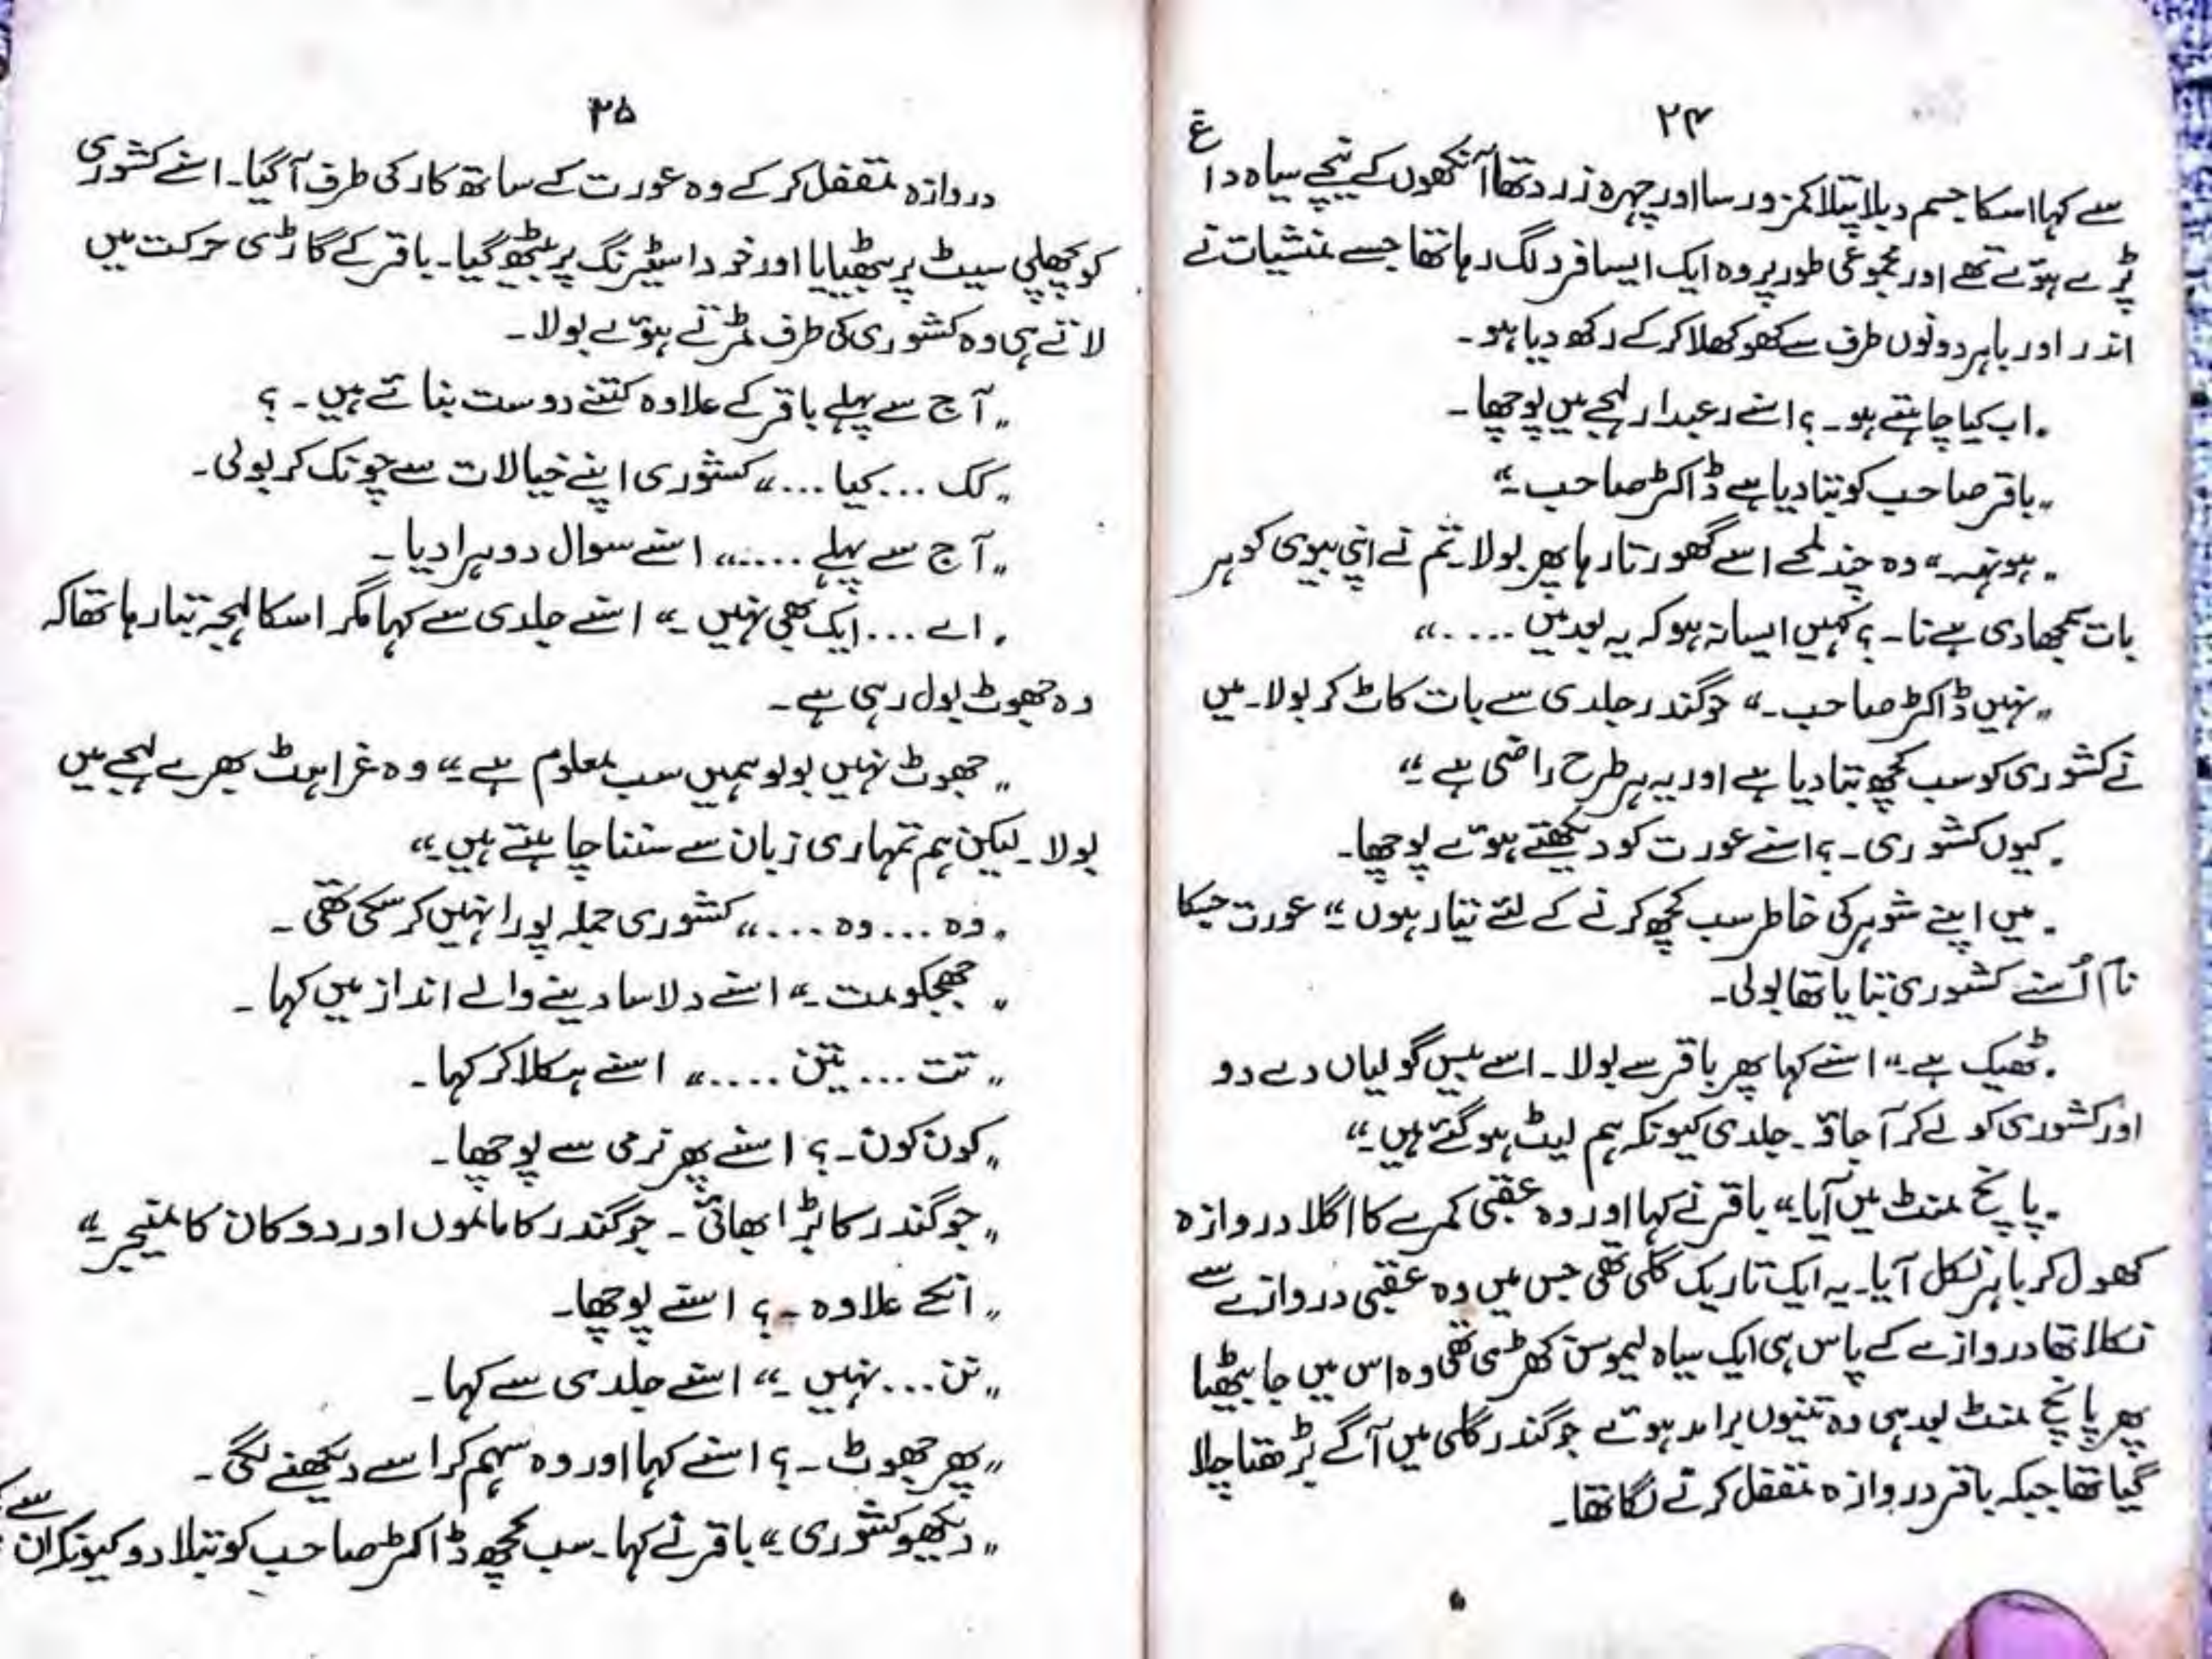 ۲۴
سے کہا اسکا جسم دبلا پتلا کمزور سا اور چہرہ زرد تھا آنکھوں کے نیچے سیاہ داغ
پڑے ہوئے تھے اور مجموعی طور پر وہ ایک ایسا فرد لگ رہا تھا جسے منشیات نے
اندر اور باہر دونوں طرف سے کھوکھلا کر کے رکھ دیا ہو۔
"اب کیا چاہتے ہو۔؟ اسنے رعبدار لہجے میں پوچھا۔
"باقر صاحب کو بتا دیا ہے ڈاکٹر صاحب۔"
"ہونہہ۔" وہ چند لمحے اسے گھورتا رہا پھر بولا۔ تم نے اپنی بیوی کو ہر
بات سمجھا دی ہے نا۔؟ کہیں ایسا نہ ہو کہ یہ بعد میں ....."
"نہیں ڈاکٹر صاحب۔" جوگندر جلدی سے بات کاٹ کر بولا۔ میں
نے کشوری کو سب کچھ بتا دیا ہے اور یہ ہر طرح راضی ہے۔"
"کیوں کشوری۔؟ اسنے عورت کو دیکھتے ہوئے پوچھا۔
"میں اپنے شوہر کی خاطر سب کچھ کرنے کے لئے تیار ہوں۔" عورت جسکا
نام اُسنے کشوری بتایا تھا بولی۔
"ٹھیک ہے۔" اسنے کہا پھر باقر سے بولا۔ اسے بیس گولیاں دے دو
اور کشوری کو لے کر آ جاؤ۔ جلدی کیونکہ ہم لیٹ ہو گئے ہیں۔"
"پانچ منٹ میں آیا۔" باقر نے کہا اور وہ عقبی کمرے کا اگلا دروازہ
کھول کر باہر نکل آیا۔ یہ ایک تاریک گلی تھی جس میں وہ عقبی دروازے سے
نکلا تھا دروازے کے پاس ہی ایک سیاہ لیموسن کھڑی تھی وہ اس میں جا بیٹھا
پھر پانچ منٹ بعد ہی وہ تینوں برامد ہوئے جوگندر گلی میں آگے بڑھتا چلا
گیا تھا جبکہ باقر دروازہ مقفل کرنے لگا تھا۔
۲۵
دروازہ مقفل کر کے وہ عورت کے ساتھ کار کی طرف آ گیا۔ اسنے کشوری
کو پچھلی سیٹ پر بٹھایا اور خود اسٹیرنگ پر بیٹھ گیا۔ باقر کے گاڑی حرکت میں
لاتے ہی وہ کشوری کی طرف مڑتے ہوئے بولا۔
"آج سے پہلے باقر کے علاوہ کتنے دوست بنائے ہیں۔؟
"کک ...کیا ..." کشوری اپنے خیالات سے چونک کر بولی۔
"آج سے پہلے ....." اسنے سوال دوہرا دیا۔
"اے ... ایک بھی نہیں۔" اسنے جلدی سے کہا مگر اسکا لہجہ بتا رہا تھا کہ
وہ جھوٹ بول رہی ہے۔
"جھوٹ نہیں بولو ہمیں سب معلوم ہے۔" وہ غراہٹ بھرے لہجے میں
بولا۔ لیکن ہم تمہاری زبان سے سننا چاہتے ہیں۔"
"وہ ... وہ ...." کشوری جملہ پورا نہیں کر سکی تھی۔
"جھجکو مت۔" اسنے دلاسا دینے والے انداز میں کہا۔
"تت ... تین ....." اسنے ہکلا کر کہا۔
"کون کون۔؟ اسنے پھر نرمی سے پوچھا۔
"جوگندر کا بڑا بھائی۔ جوگندر کا ماموں اور دوکان کا منیجر۔"
"انکے علاوہ۔؟ اسنے پوچھا۔
"نن ...نہیں۔" اسنے جلدی سے کہا۔
"پھر جھوٹ۔؟ اسنے کہا اور وہ سہم کر اسے دیکھنے لگی۔
"دیکھو کشوری۔" باقر نے کہا۔ سب کچھ ڈاکٹر صاحب کو بتلا دو کیونکہ ان سے